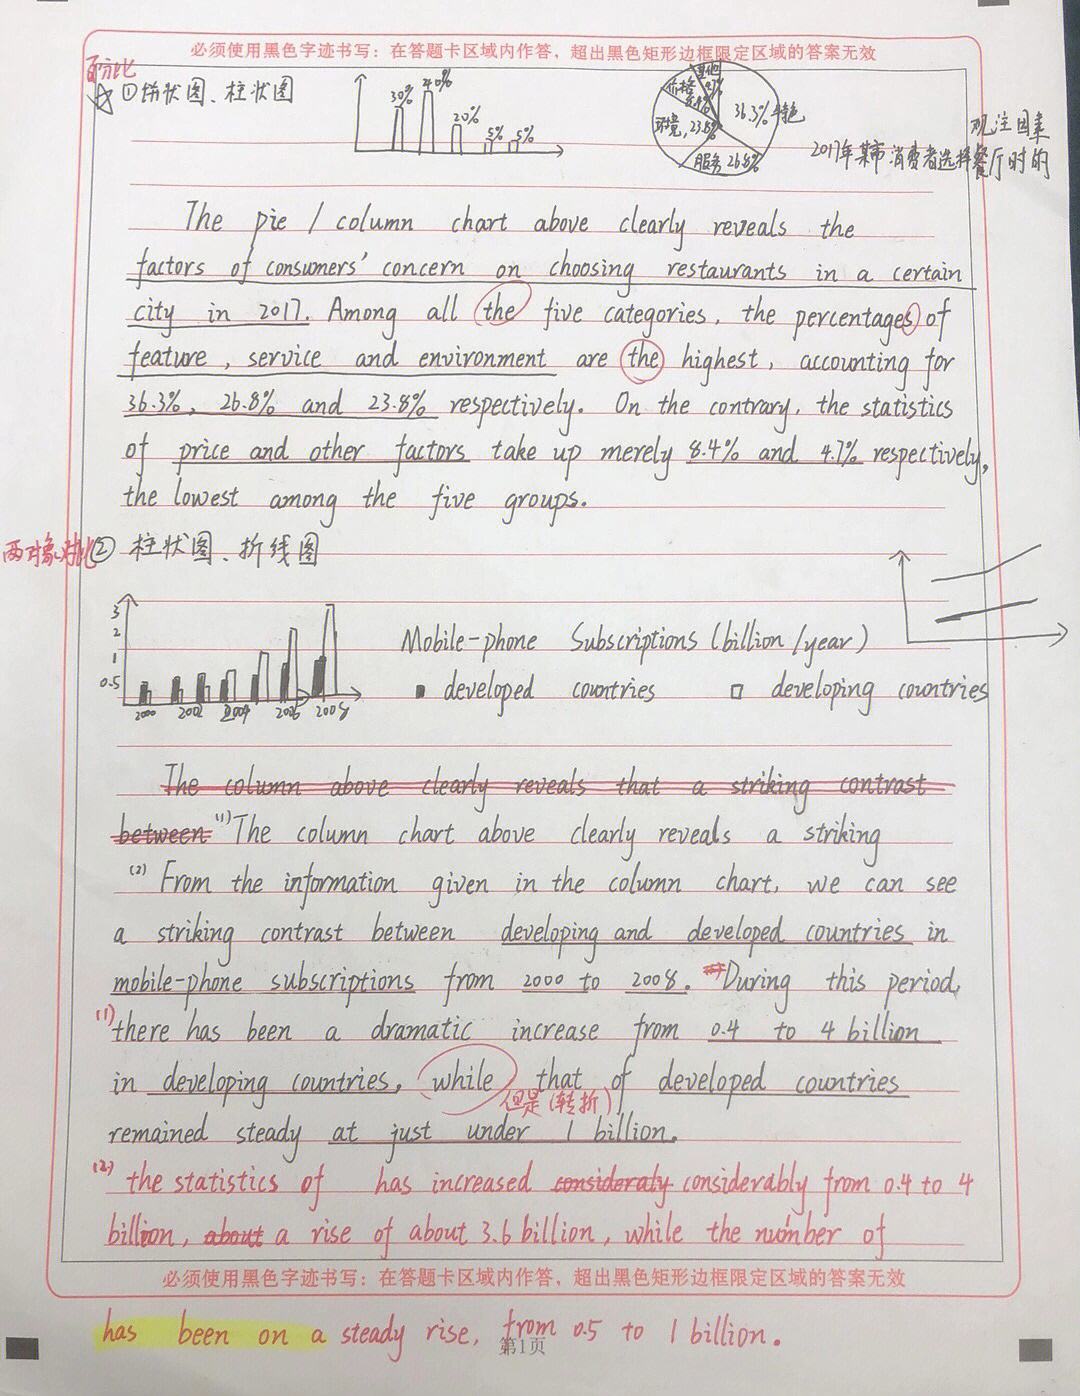 必须使用黑色字迹书写：在答题卡区域内作答，超出黑色矩形边框限定区域的答案无效
百分比
☆ ①饼状图、柱状图
30% 40% 20% 5% 5%
其他 4.7%
价格 8.4%
36.3% 特色
环境, 23.8%
服务 26.8%
观注因素
2017年某市消费者选择餐厅时的
The pie / column chart above clearly reveals the
factors of consumers' concern on choosing restaurants in a certain
city in 2017. Among all the five categories, the percentages of
feature, service and environment are the highest, accounting for
36.3%, 26.8% and 23.8% respectively. On the contrary, the statistics
of price and other factors take up merely 8.4% and 4.7% respectively,
the lowest among the five groups.
两对象对比 ② 柱状图、折线图
3
2
1
0.5
2000 2002 2004 2006 2008
Mobile-phone Subscriptions (billion/year)
developed countries developing countries
The column above clearly reveals that a striking contrast
between (1) The column chart above clearly reveals a striking
(2) From the information given in the column chart, we can see
a striking contrast between developing and developed countries in
mobile-phone subscriptions from 2000 to 2008. During this period,
(1) there has been a dramatic increase from 0.4 to 4 billion
in developing countries, while that of developed countries
但是(转折)
remained steady at just under 1 billion.
(2) the statistics of has increased consideraty considerably from 0.4 to 4
billion, about a rise of about 3.6 billion, while the number of
必须使用黑色字迹书写：在答题卡区域内作答，超出黑色矩形边框限定区域的答案无效
has been on a steady rise, from 0.5 to 1 billion.
第1页